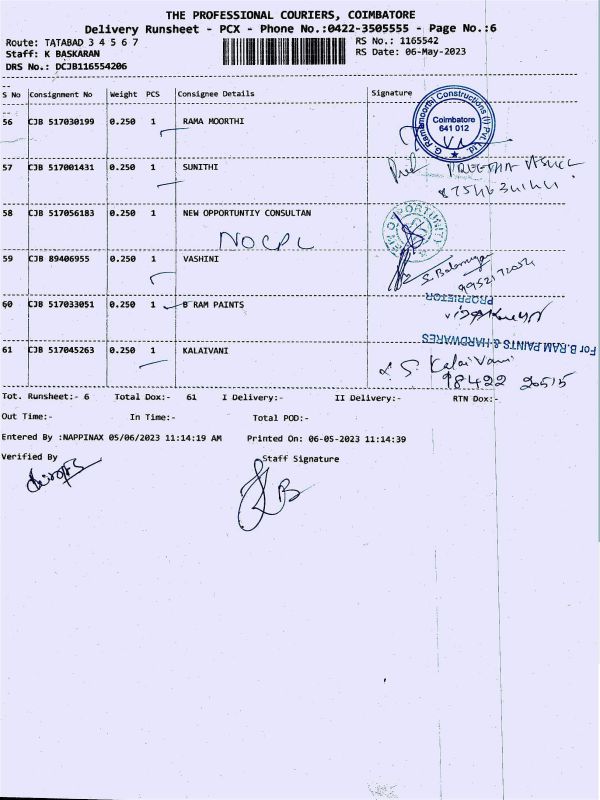 THE PROFESSIONAL COURIERS, COIMBATORE
Delivery Runsheet - PCX - Phone No.:0422-3505555 - Page No.:6
Route: TATABAD 3 4 5 6 7
RS No.: 1165542
Staff: K BASKARAN
RS Date: 06-May-2023
DRS No.: DCJB116554206
S No Consignment No Weight PCS Consignee Details Signature
56 CJB 517030199 0.250 1 RAMA MOORTHI
G. Ramamoorthi Constructions (I) Pvt. Ltd.
Coimbatore
641 012
57 CJB 517001431 0.250 1 SUNITHI
58 CJB 517056183 0.250 1 NEW OPPORTUNTIY CONSULTAN
NOCPL
NEW OPPORTUNITY
59 CJB 89406955 0.250 1 VASHINI
60 CJB 517033051 0.250 1 B RAM PAINTS
PROPRIETOR
For B.RAM PAINTS & HARDWARES
61 CJB 517045263 0.250 1 KALAIVANI
S. KalaiVani
98422 20515
Tot. Runsheet:- 6 Total Dox:- 61 I Delivery:- II Delivery:- RTN Dox:-
Out Time:- In Time:- Total POD:-
Entered By :NAPPINAX 05/06/2023 11:14:19 AM Printed On: 06-05-2023 11:14:39
Verified By Staff Signature